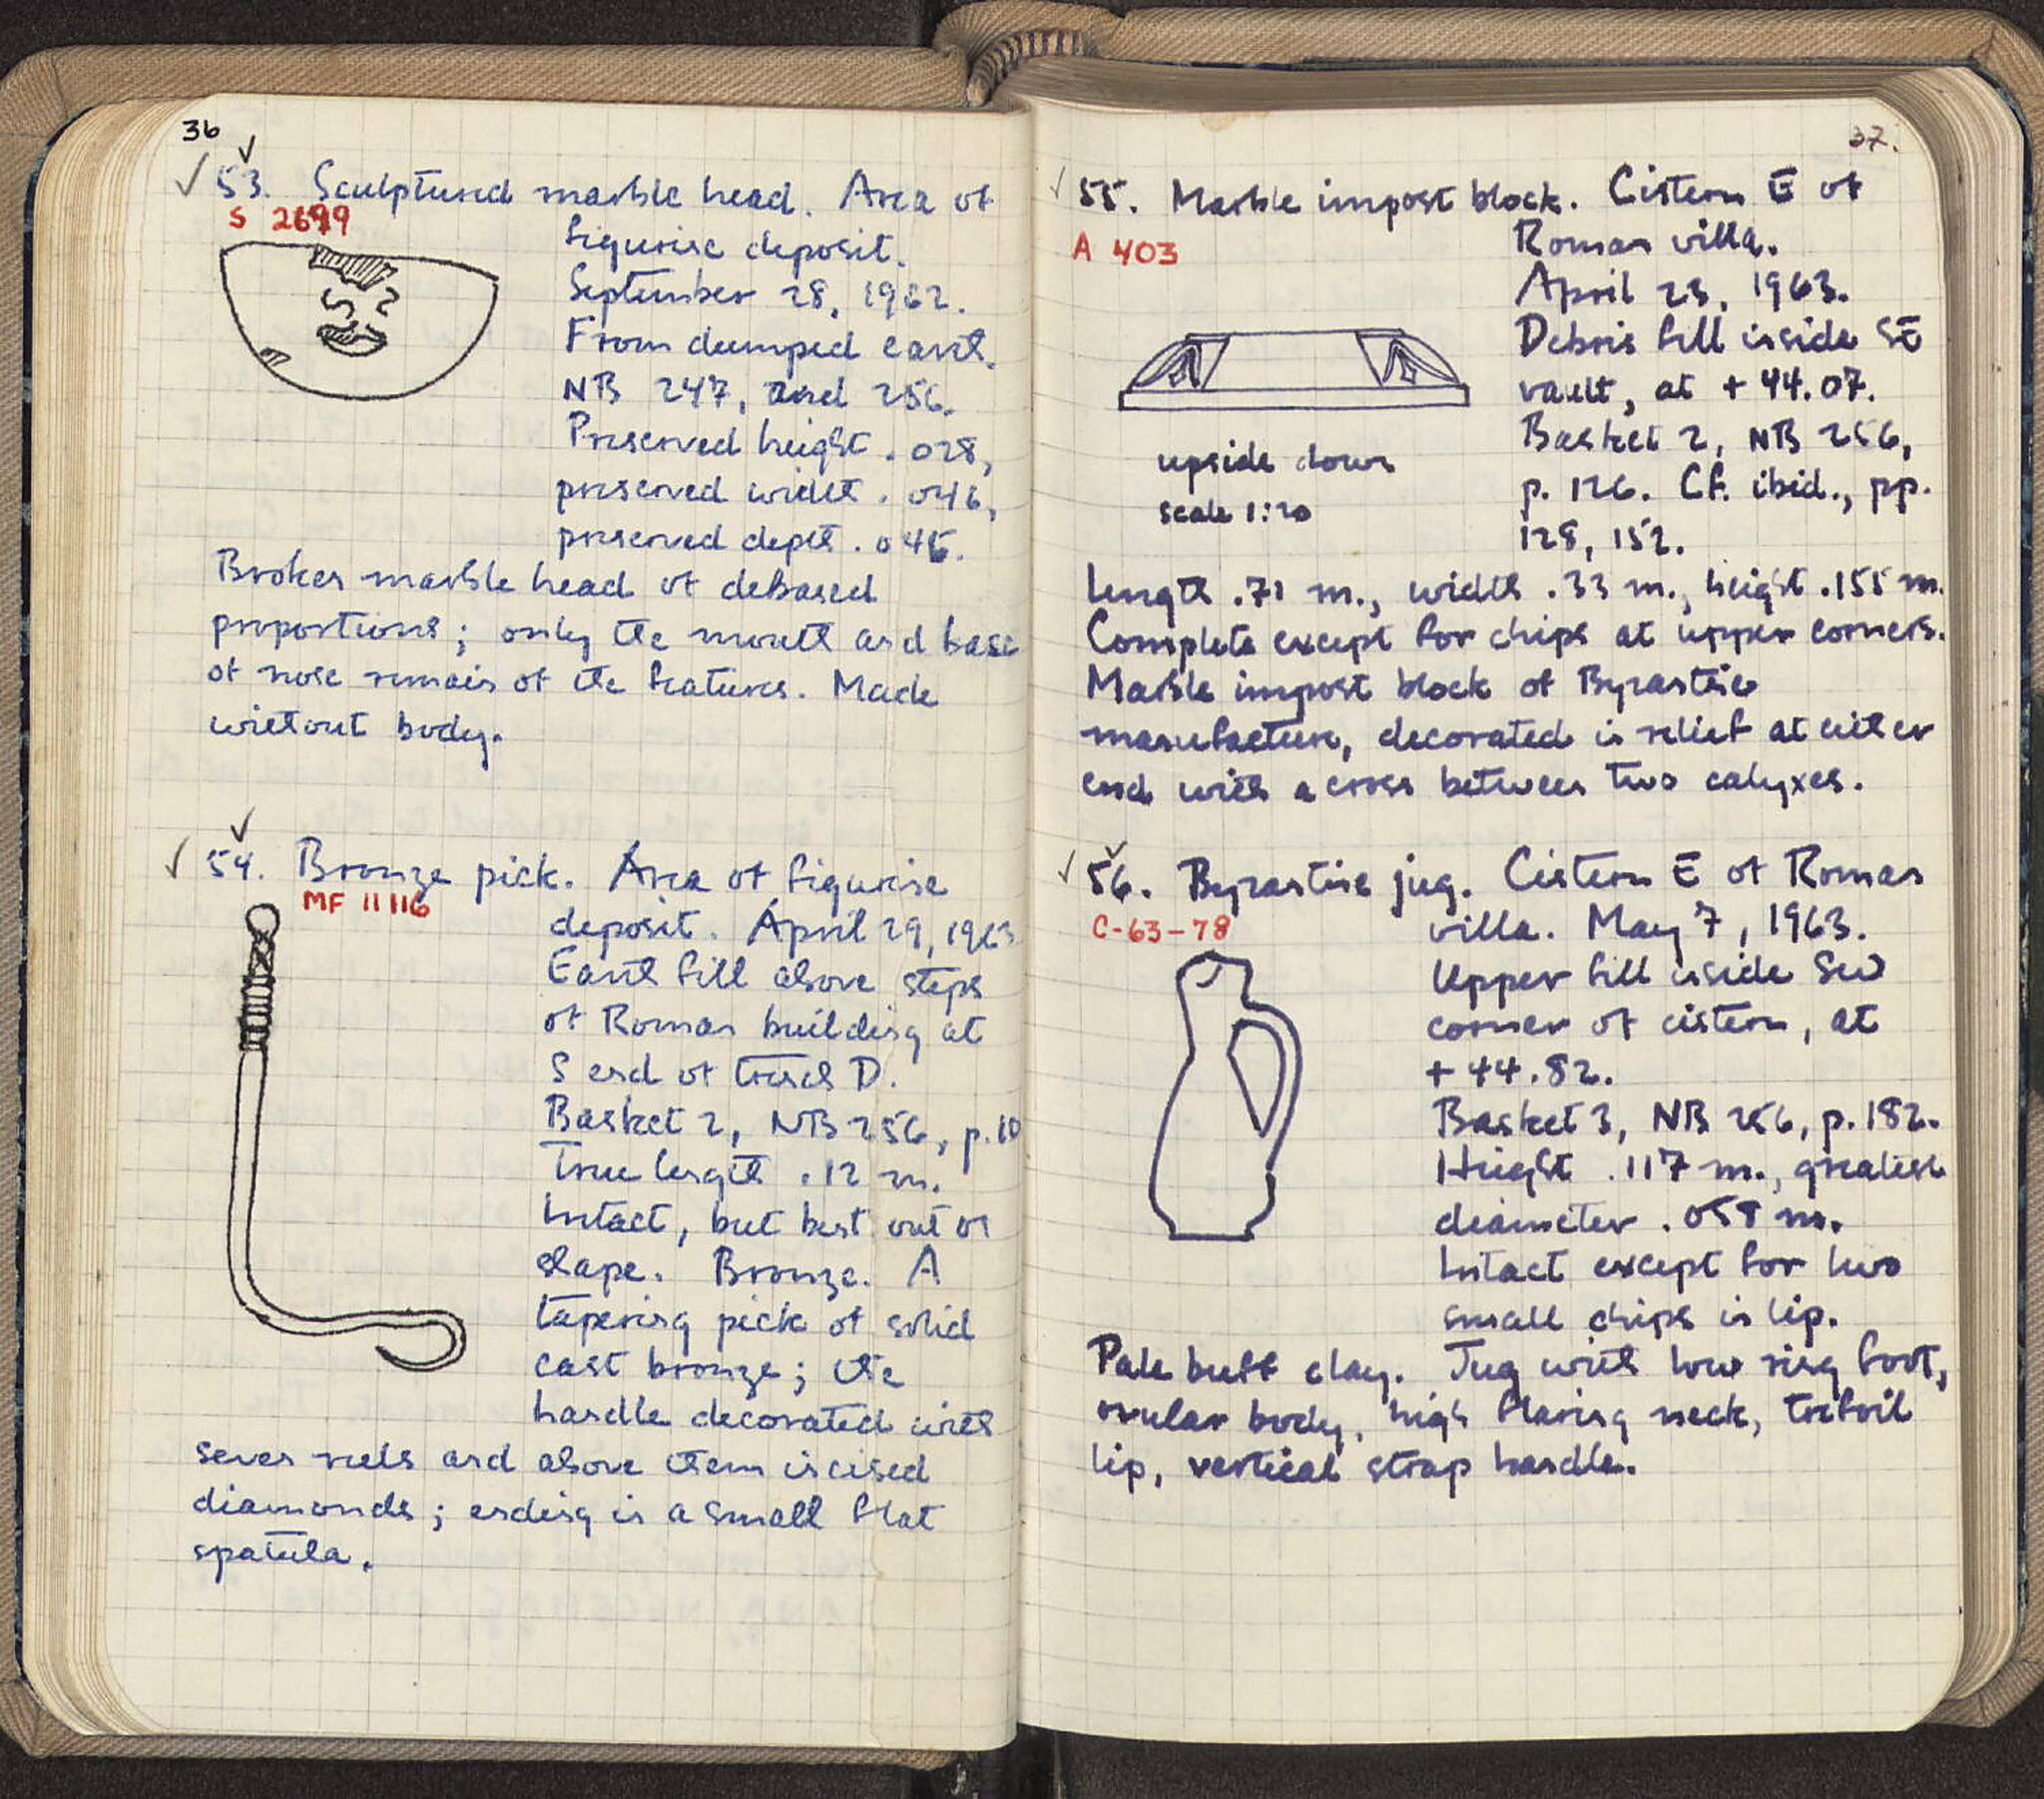 36
53. Sculptured marble head. Area of
S 2699
figurine deposit.
September 28, 1962.
From dumped earth.
NB 247, and 256.
Preserved height .028,
preserved width .046,
preserved depth .045.
Broken marble head of debased
proportions; only the mouth and base
of nose remain of the features. Made
without body.
54. Bronze pick. Area of figurine
MF 11116
deposit. April 29, 1963
Earth fill above steps
of Roman building at
S end of trench D.
Basket 2, NB 256, p.
True length .12 m.
Intact, but bent out of
shape. Bronze. A
tapering pick of solid
cast bronze; the
handle decorated with
seven reels and above them incised
diamonds; ending in a small flat
spatula.
37.
55. Marble impost block. Cistern E of
A 403
Roman villa.
April 23, 1963.
Debris fill inside SE
vault, at + 44.07.
Basket 2, NB 256,
p. 126. Cf. ibid., pp.
128, 152.
upside down
scale 1:20
Length .71 m., width .33 m., height .155 m.
Complete except for chips at upper corners.
Marble impost block of Byzantine
manufacture, decorated in relief at either
end with a cross between two calyxes.
56. Byzantine jug. Cistern E of Roman
C-63-78
villa. May 7, 1963.
Upper fill inside SW
corner of cistern, at
+ 44.82.
Basket 3, NB 256, p. 182.
Height .117 m., greatest
diameter .058 m.
Intact except for two
small chips in lip.
Pale buff clay. Jug with low ring foot,
ovular body, high flaring neck, trefoil
lip, vertical strap handle.